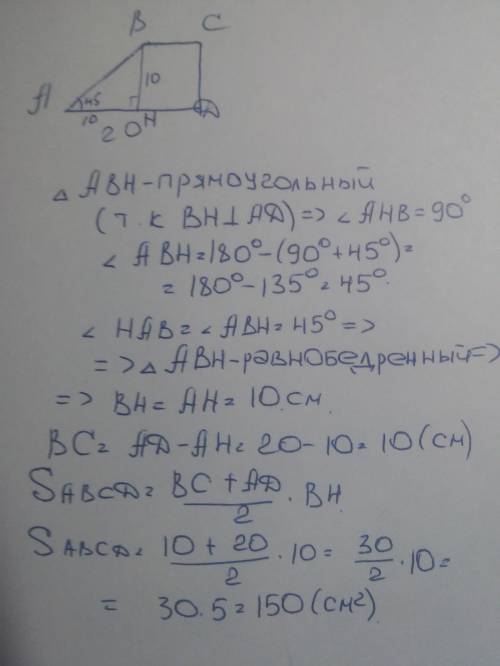 B C
A 45 10
10 H D
20
△ ABH-прямоугольный
(т.к BH⊥AD) => ∠AHB=90°
∠ABH=180°-(90°+45°)=
=180°-135°=45°.
∠HAB=∠ABH=45°=>
=>△ABH-равнобедренный=>
=> BH=AH=10см
BC=AD-AH=20-10=10(см)
SABCD=BC+AD/2·BH
SABCD=10+20/2·10=30/2·10=
= 30·5=150(см²)